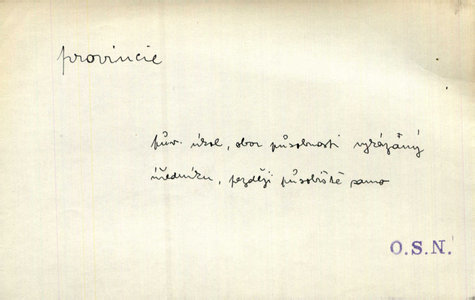 provincie
pův. úkol, obor působnosti vykázaný
úředníku, později působiště samo
O.S.N.